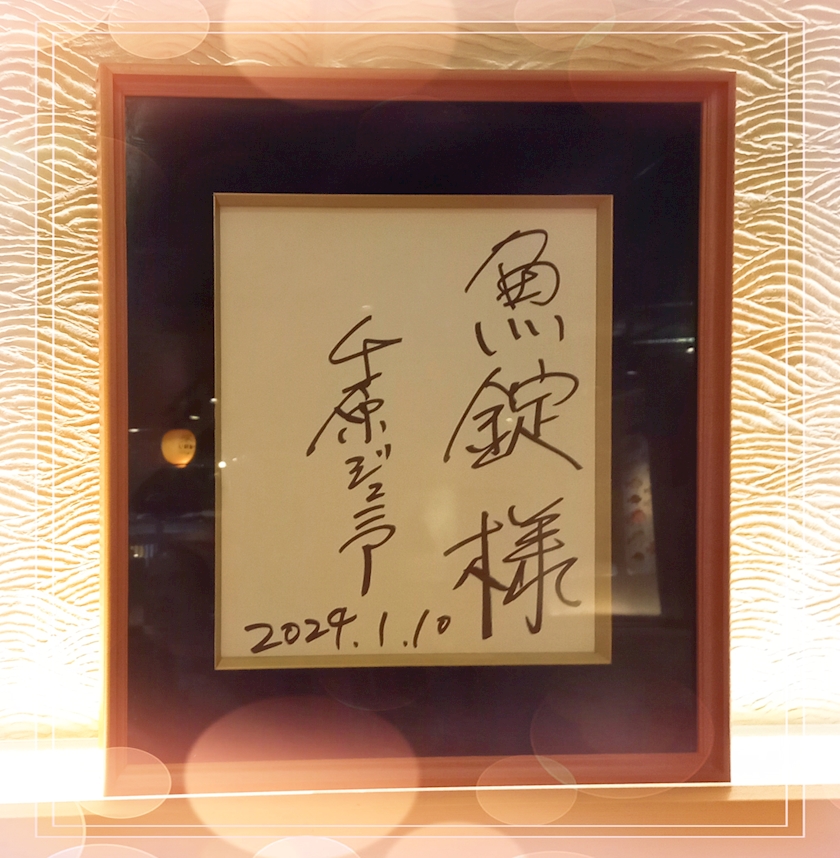 魚錠様
千原ジュニア
2024.1.10